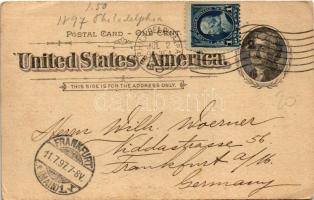 1.50
1897 Philadelphia
POSTAL CARD - ONE CENT
United States of America.
THIS SIDE IS FOR THE ADDRESS ONLY.
Herrn Wilh. Woerner
Niddastrasse 56
Frankfurt a/M.
Germany
FRANKFURT
11.7.97.7-8V.
(MAIN) 1.